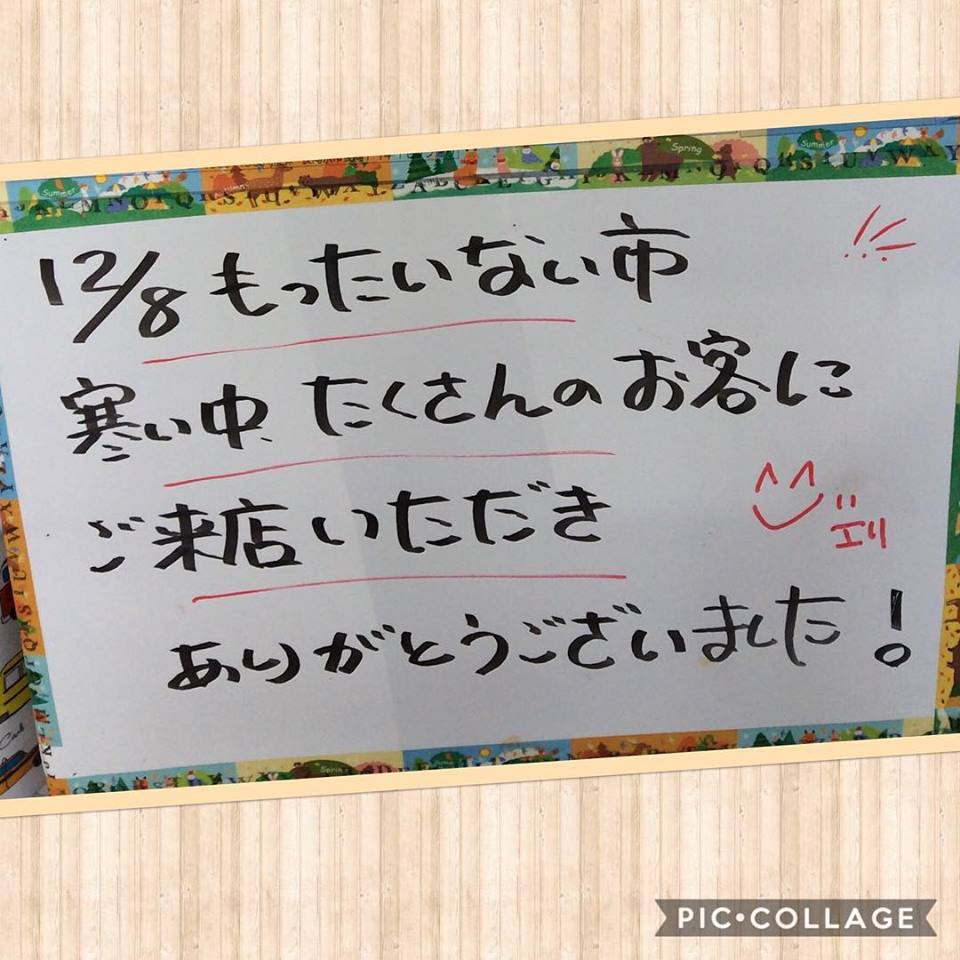 12/8 もったいない市
寒い中 たくさんのお客に
ご来店いただき
エリ
ありがとうございました!
Summer
Spring
Summer
Spring
PIC•COLLAGE